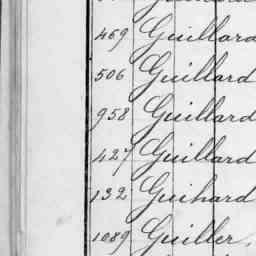 469 Guillard
506 Guillard
958 Guillard
427 Guillard
132 Guihard
1089 Guiller